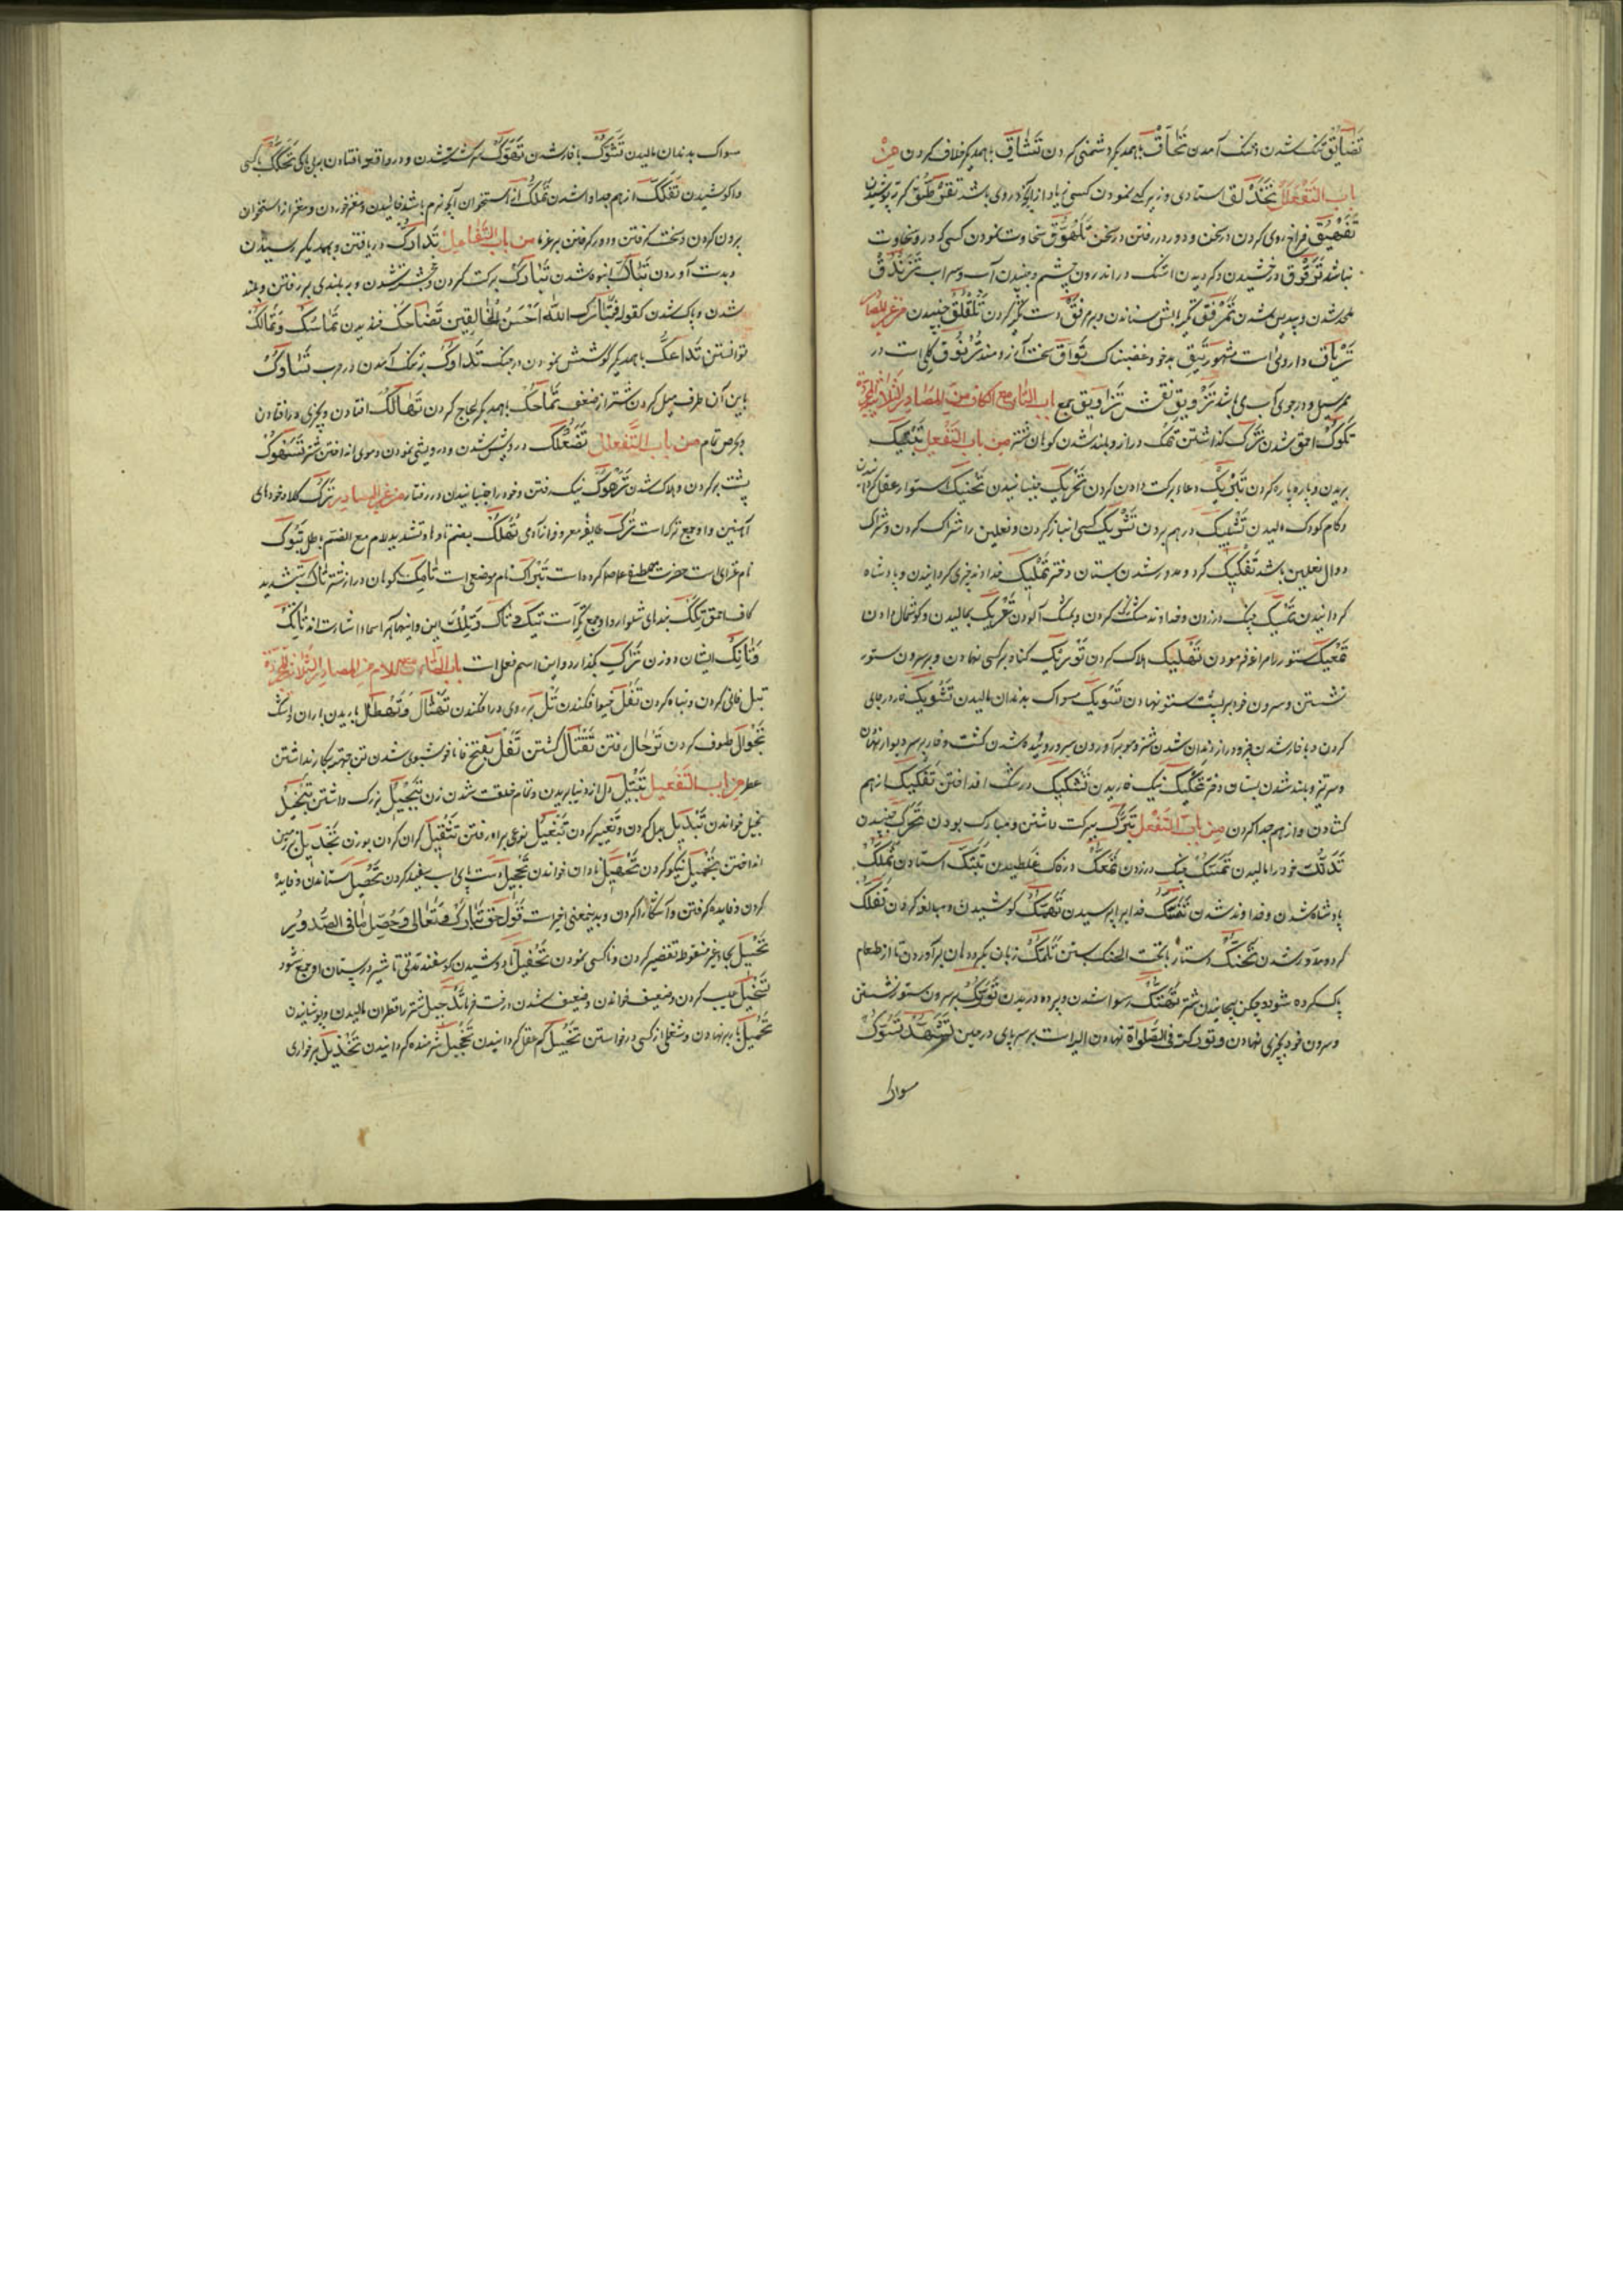 تَضَايُق تنک شدن و تنک آمدن تَحَاقّ باهمدیکر دشمنی کردن تَشَاقّ باهمدیکر خلاف کردن من
باب التَّفَعْلُل تَحَذْلُق استادی و زیرکی نمودن کسی زیاده از آنکه در وی باشد
تَفَيْهُق فراخ روی کردن در سخن و دور در رفتن در سخن تَلَهْوُق سخاوت نمودن کسی که درو سخاوت
نباشد تَرَقْرُق درخشیدن و کردیدن اشک در اندرون چشم و جنبیدن آب و سراب تَزَنْدُق
ملحد شدن و بیدین شدن تَمَرْفُق تکیه بالش ستاندن و بر مرفق دست تکیه کردن تَلَقْلُق جنبیدن من غیر المصادر
تِرْيَاق داروئی است مشهور تَئِق بدخو و غضبناک تَوَّاق سخت آرزومند تُرْنُوق کلی است در
ممر سیل و در جوی آب می باشد تَزْوِيق نقش تَزَاوِيق جمع باب التاء مع الکاف من المصادر الثلاثیة المجردة
تُكُوك احمق شدن تَرْك کذاشتن تَمْك دراز و بلند شدن کوهان شتر من باب التفعیل تَبْتِيك
بریدن و پاره پاره کردن تَبْرِيك دعاء برکت دادن کردن تَحْرِيك جنبانیدن تَحْنِيك استوار عقل کردانیدن
و کام کودک مالیدن تَشْبِيك در هم بردن تَشْرِيك کسی انباز کردن و نعلین را شراک کردن و شراک
دوال نعلین باشد تَفْلِيك کرد و مدور شدن پستان دختر تَمْلِيك خداوند چیزی کردانیدن و پادشاه
کردانیدن تَمْسِيك چنک در زدن و خداوند مشک کردن و بمشک آلودن تَعْرِيك بمالیدن و کوشمال دادن
تَهْلِيك هلاک کردن تَوْرِيك کناه بر کسی نهادن و بر سرون ستور
نشستن و سرون خود بر پشت ستور نهادن تَسْوِيك مسواک بدندان مالیدن تَشْوِيك خار در جای
کردن و با خار شدن چیزو دراز دندان شدن شتر و مو برآوردن سر و روئیده شدن کشت و خار بر سر دیوار نهادن
و سر تیز و بلند شدن پستان دختر تَحْكِيك نیک خاریدن تَشْكِيك در شک انداختن تَفْكِيك از هم
کشادن و از هم جدا کردن من باب التَّفَعُّل تَبَرُّك ببرکت داشتن و مبارک بودن تَحَرُّك جنبیدن
تَدَلُّك خود را مالیدن تَمَسُّك چنک در زدن تَمَعُّك در خاک غلطیدن تَلَبُّك استادن تَمَلُّك
پادشاه شدن و خداوند شدن تَنَسُّك خدایرا پرستیدن تَهَمُّك کوشیدن و مبالغه کردن تَفَلُّك
کرد و مدور شدن تَحَنُّك دستار با تحت الحنک بستن تَلَمُّك زبان بکرد دهان برآوردن تا از طعام
پاک کرده شود و چکن پیچانیدن شتر تَهَتُّك رسوا شدن و پرده دریدن تَوَرُّك بر سرون ستور نشستن
و سرون خود بچیزی نهادن و تورّکت فی الصلواة نهادن الیه است بر سر پای در حین تشهّد تَسَوُّك
سواک
سواک بدندان مالیدن تَشَوُّك با خار شدن تَهَوُّك سرکشته شدن و در واقعه افتادن ببی باکی تَحَكُّك با کسی
واکوشیدن تَفَكُّك از هم جدا وا شدن تَمَكُّك از استخوان آنچه نرم باشد خائیدن و مغز خوردن و مغز از استخوان
برون کردن و سخت کرفتن و دور کرفتن بر غرما من باب التَّفَاعُل تَدَارُك دریافتن و بهمدیکر رسیدن
و بدست آوردن تَبَاكّ انبوه شدن تَبَارُك برکت کردن و بر بلندی بر رفتن و بلند
شدن و پاک شدن کقوله فَتَبَارَكَ اللّٰهُ اَحْسَنُ الْخَالِقِين تَضَاحُك خندیدن تَمَاسُك وَتَمَالُك
توانستن تَدَاعُك باهمدیکر کوشش نمودن در جنک تَدَاوُك تنک آمدن در حرب تَسَاوُك
باین آن طرف میل کردن شتر از ضعف تَمَاحُك باهمدیکر لجاج کردن تَهَالُك افتادن و بچیزی در افتادن
بحرص تمام من باب التَّفَعْلُل تَصَعْلُك درویش شدن و درویشی نمودن و موی انداختن شتر تَسَهْوُك
پشت بر کردن و هلاک شدن تَرَهْوُك نیک رفتن و خود را جنبانیدن در رفتار من غیر المصادر تَرْك کلاه خودهای
آهنین واو جمع ترکه است تُرْك طایفه معروف از آدمی تُهُلِّك بضم تاء و هاء و تشدید لام مع الضم باطل تَبُوك
نام غزای است حضرت مصطفی علیه السلام کرده است تِبْرَاك نام موضعی است تَامِك کوهان دراز شتر تَاكّ بتشدید
کاف احمق تِكَّة بندهای شلوار و او جمع تکّه است تِيكَ وَتَاكَ وَتِلْكَ این و اینها که اسماء اشارت اند تَانِكَ
وَتَانِّكَ ایشان دو زن تَرَاكِ بکذار و این اسم فعل است باب التاء مع اللام من المصادر الثلاثیة المجردة
تَبْل فانی کردن و تباه کردن تَفْل خیو افکندن تَلّ بر روی در افکندن تَهْتَال وَتَهْطَال باریدن باران و اشک
تَجْوَال طوف کردن تَرْحَال رفتن تَقْتَال کشتن تَفَل بفتح فا ناخوشبوی شدن تن بجهت بکار نداشتن
عطر من باب التفعیل تَبْتِيل دل از دنیا بریدن و تمام خلقت شدن زن تَبْجِيل بزرک داشتن تَبْخِيل
بخیل خواندن تَبْدِيل بدل کردن و تغییر کردن تَبْغِيل نوعی براه رفتن تَثْقِيل کران کردن بوزن تَجْدِيل بر زمین
انداختن تَجْمِيل نیکو کردن تَجْهِيل نادان خواندن تَحْجِيل دست پای اسب سفید کردن تَحْصِيل ستاندن و فایده
کردن و فایده کرفتن و آشکارا کردن و بدین معنی اخیر است قول حق تبارک و تعالی وَحُصِّلَ مَا فِی الصُّدُورِ
کردن و ناکسی نمودن تَحْفِيل نادوشیدن کوسفند مدتی تا شیر در پستان او جمع شود
کردن و ضعیف خواندن و ضعیف شدن درخت خرما شتر را قطران مالیدن و پوشانیدن
تَحْمِيل بار بر نهادن و شغلی از کسی درخواستن تَخْبِيل کم عقل کردانیدن تَخْجِيل شرمنده کردانیدن تَخْذِيل بر خواری